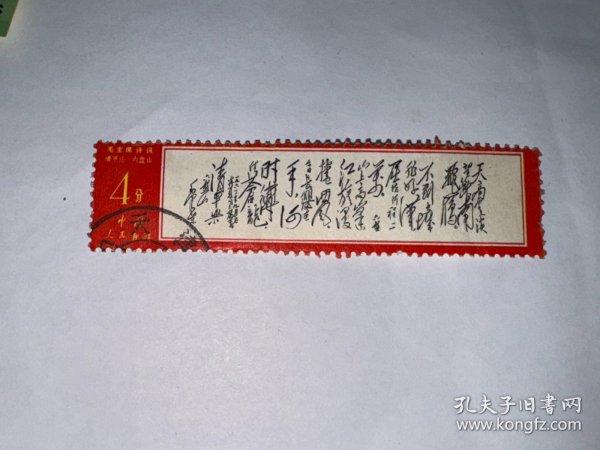 毛主席诗词
清平乐·六盘山
4分
中国
人民邮政
天高云淡
望断南
飞雁
不到长城
非好汉
屈指行程二
万 六盘
山上高峰
红旗漫
捲西风
今日长缨在
手 何
时缚住
苍龙
清平乐
六盘山
毛泽东
孔夫子旧书网
www.kongfz.com